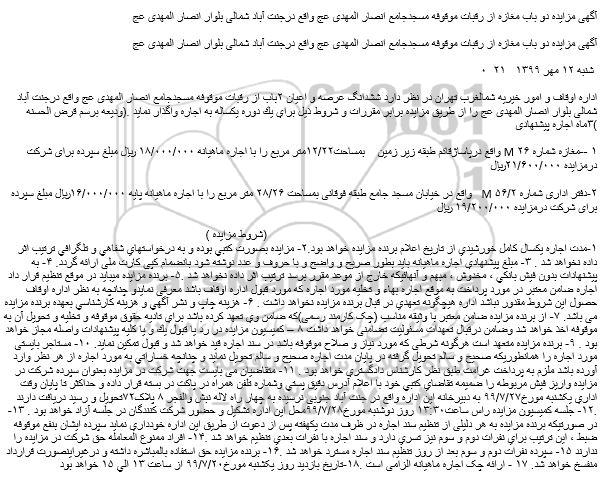 آگهی مزایده دو باب مغازه از رقبات موقوفه مسجدجامع انصار المهدی عج واقع درجنت آباد شمالی بلوار انصار المهدی عج
آگهی مزایده دو باب مغازه از رقبات موقوفه مسجدجامع انصار المهدی عج واقع درجنت آباد شمالی بلوار انصار المهدی عج
شنبه ۱۲ مهر ۱۳۹۹ ۲۱ ۰
اداره اوقاف و امور خیریه شمالغرب تهران در نظر دارد ششدانگ عرصه و اعیان ۲باب از رقبات موقوفه مسجدجامع انصار المهدی عج واقع درجنت آباد
شمالی بلوار انصار المهدی عج را از طریق مزایده برابر مقررات و شروط ذیل برای یك دوره یكساله به اجاره واگذار نماید .(ودیعه برسم قرض الحسنه
)۳ماه اجاره پیشنهادی
۱ --مغازه شماره ۲۶ M واقع درپاساژقائم طبقه زیر زمین بمساحت۱۲/۲۲متر مربع را با اجاره ماهیانه ۱۸/۰۰۰/۰۰۰ ریال مبلغ سپرده برای شرکت
درمزایده ۲۱/۶۰۰/۰۰۰ریال
۲-دفتر اداری شماره ۵۶/۲ M واقع در خیابان مسجد جامع طبقه فوقانی بمساحت ۲۸/۲۶ متر مربع را با اجاره ماهیانه پایه ۱۶/۰۰۰/۰۰۰ریال مبلغ سپرده
برای شرکت درمزایده ۱۹/۲۰۰/۰۰۰ ریال
(شروط مزایده )
۱-مدت اجاره یکسال کامل خورشیدي از تاریخ اعلام برنده مزایده خواهد بود.۲- مزایده بصورت کتبي بوده و به درخواستهاي شفاهي و تلگرافي ترتیب اثر
داده نخواهد شد . ۳- مبلغ پیشنهادي اجاره ماهیانه باید بطور صریح و واضح و با حروف و عدد نوشته شود بانضمام کپی کارت ملی ارائه گردند. ۴- به
پیشنهادات بدون فیش بانکي ، مخدوش ، مبهم و آنهائیکه خارج از موعد مقرر برسد ترتیب اثر داده نخواهد شد .۵- برنده مزایده میباید در موقع تنظیم قرار داد
اجاره ضامن معتبر در مورد پرداخت به موقع اجاره بهاء و تخلیه مورد اجاره که مورد قبول اداره اوقاف باشد معرفي نماید و چنانچه به نظر اداره اوقاف
حصول این شروط مقدور نباشد اداره هیچگونه تعهدي در قبال برنده مزایده نخواهد داشت . ۶- هزینه چاپ و نشر آگهي و هزینه کارشناسي بعهده برنده مزایده
می باشد. ۷- از برنده مزایده ضامن معتبر یا وثیقه مناسب (چک کارمند رسمي)که ضامن وي تعهد کرده باشد برای تادیه حقوق موقوفه و تخلیه و تحویل آن به
موقوفه اخذ خواهد شد وضامن درقبال تعهدات مسئولیت تضامني خواهد داشت ۸- کمیسیون مزایده در رد یا قبول یک و یا کلیه پیشنهادات واصله مجاز خواهد
بود . ۹- برنده مزایده متعهد است هرگونه شرطي که مورد نیاز و صلاح موقوفه باشد در سند اجاره قید خواهد شد و قبول تمکین نماید .۱۰- مستاجر بایستی
مورد اجاره را همانطوریکه صحیح و سالم تحویل گرفته در پایان مدت اجاره صحیح و سالم تحویل نماید و چنانچه خساراتي به مورد اجاره از هر نظر وارد
آورده باشد ملزم به پرداخت غرامت طبق نظر کارشناس دادگستري خواهد بود . ۱۱- متقاضیان مي بایست جهت شرکت در مزایده بعنوان سپرده شرکت در
مزایده واریز فیش مربوطه را ضمیمه تقاضاي کتبي خود با اعلام آدرس دقیق پستي وشماره تلفن همراه در پاکت در بسته قرار داده و حداکثر تا پایان وقت
اداري یکشنبه مورخ۹۹/۷/۲۷ به دبیرخانه این اداره واقع در جنت آباد جنوبی نرسیده به چهار راه لاله نبش والفجر ۸ پلاک۷۲تحویل و رسید دریافت دارند
.۱۲- جلسه کمیسیون مزایده راس ساعت۱۳:۳۰ روز دوشنبه مورخ۹۹/۷/۲۸محل این اداره تشکیل و حضور شرکت کنندگان در جلسه آزاد خواهد بود . ۱۳-
در صورتیکه برنده مزایده به هر دلیلي از تنظیم سند اجاره در ظرف مدت یکهفته پس از دعوت از طریق این اداره خودداري نماید سپرده ایشان بنفع موقوفه
ضبط ، این ترتیب براي نفرات دوم و سوم نیز تسري دارد و سند اجاره با نفرات بعدي تنظیم خواهد شد .۱۴- افراد ممنوع المعامله حق شرکت در مزایده را
ندارند ۱۵- سپرده نفرات دوم و سوم بعد از روز تنظیم سند اجاره مسترد خواهد شد .۱۶- برنده مزایده حق استفاده بالمباشره داشته و درغیراینصورت قرارداد
منفسخ خواهد شد. ۱۷ - ارائه چک اجاره ماهیانه الزامی است .۱۸-تاریخ بازدید روز یکشنبه مورخ۹۹/۷/۲۰ از ساعت ۱۳ الي ۱۵ خواهد بود